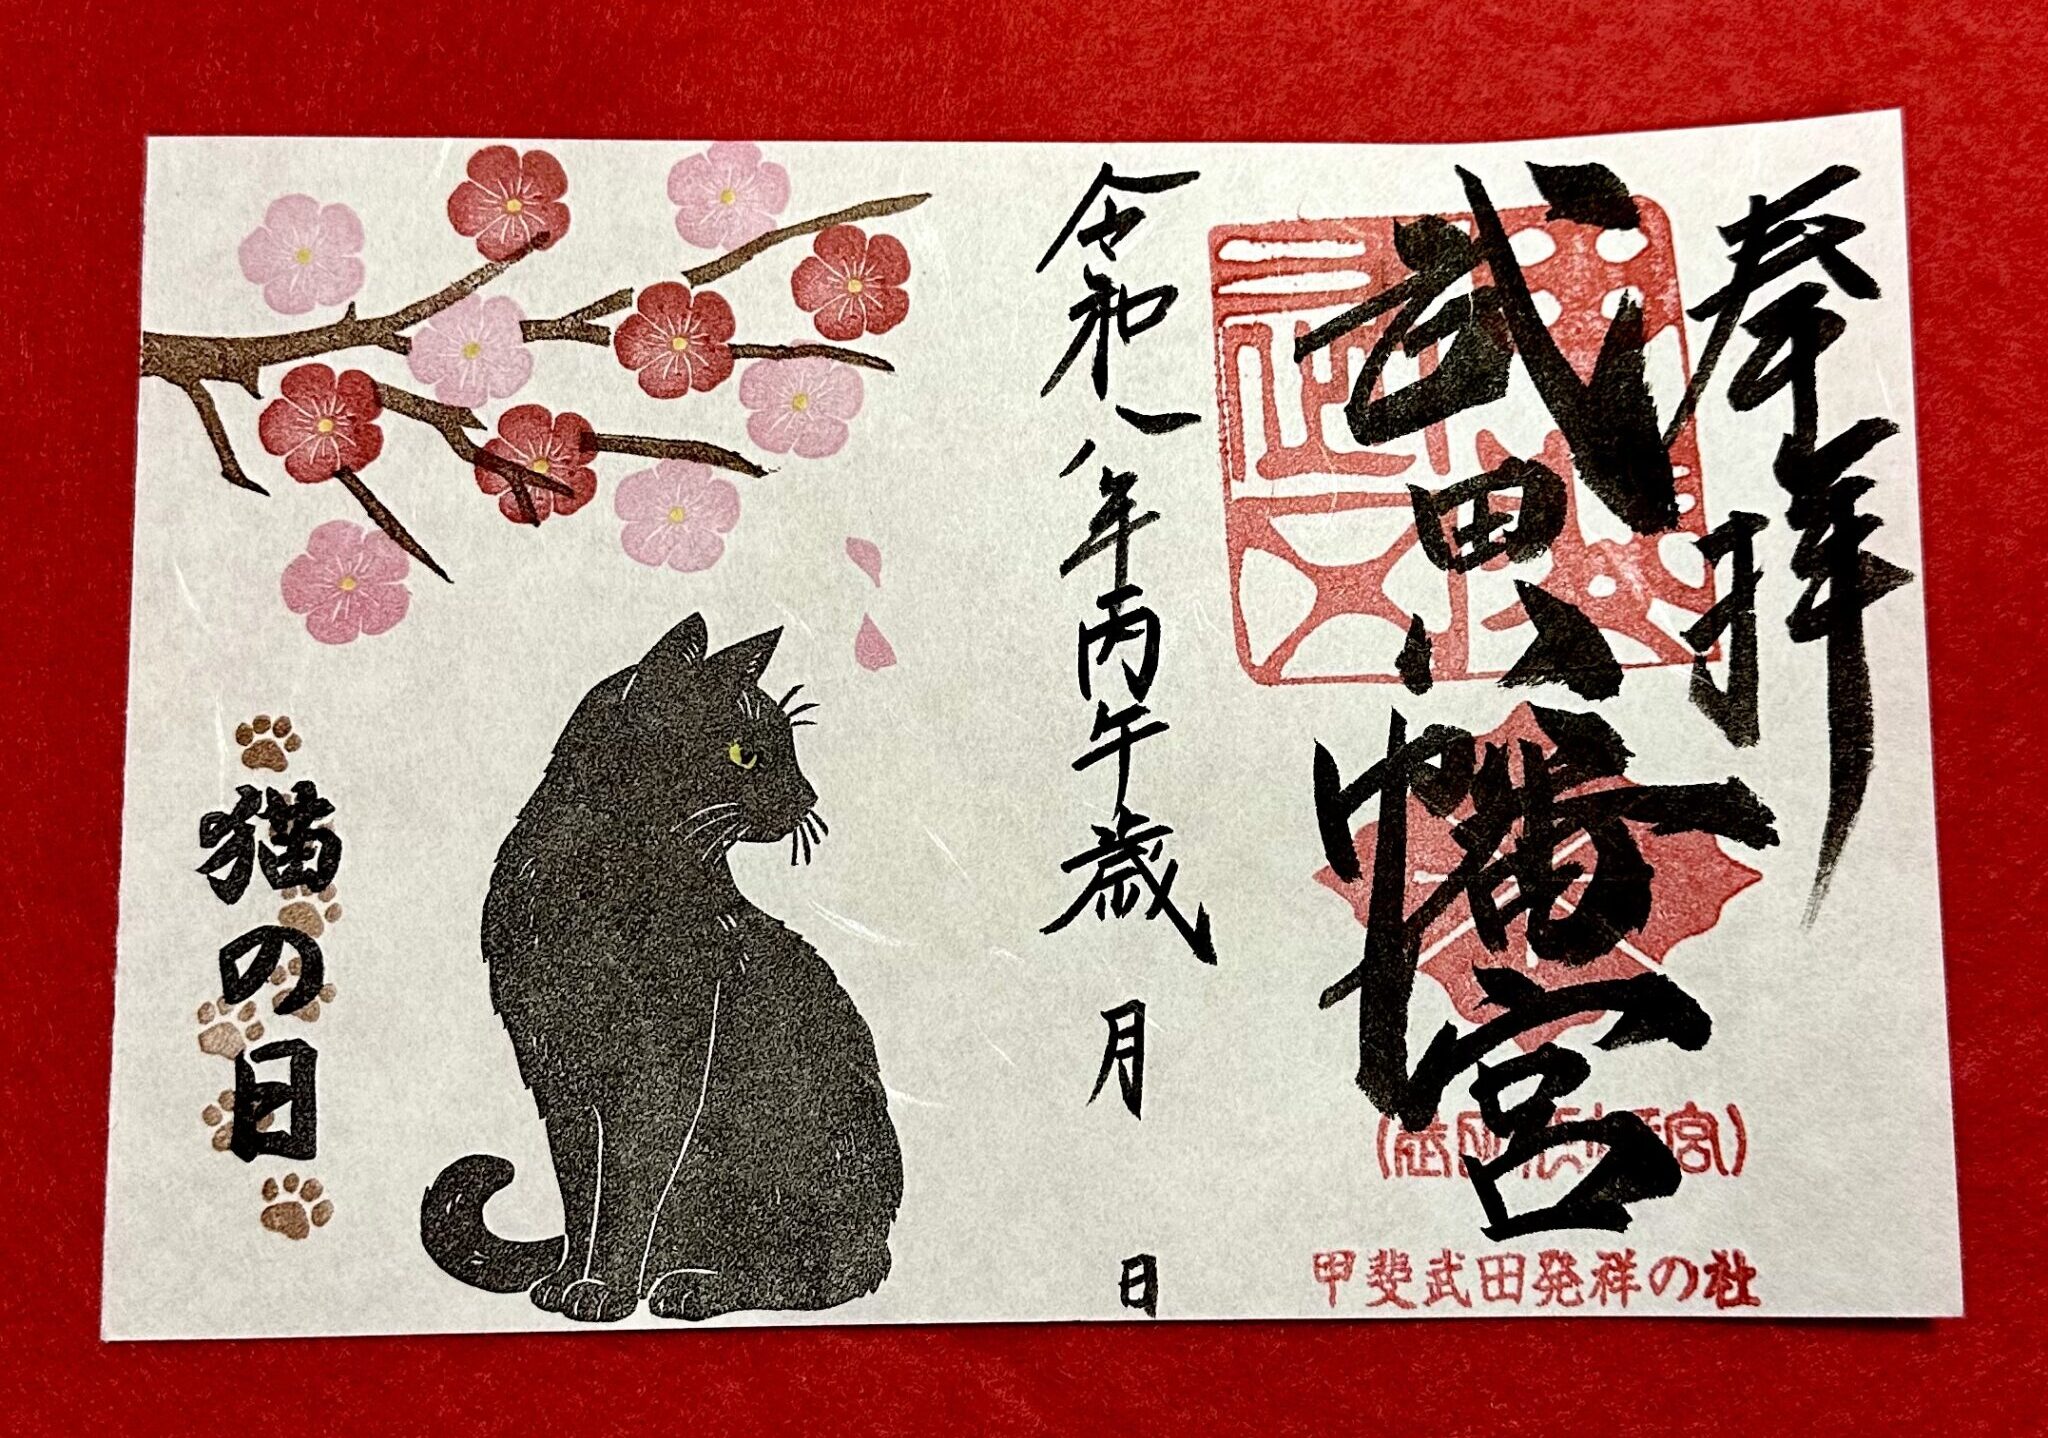 奉拝
武田八幡宮
甲斐武田発祥の社
令和八年丙午歳 月 日
猫の日